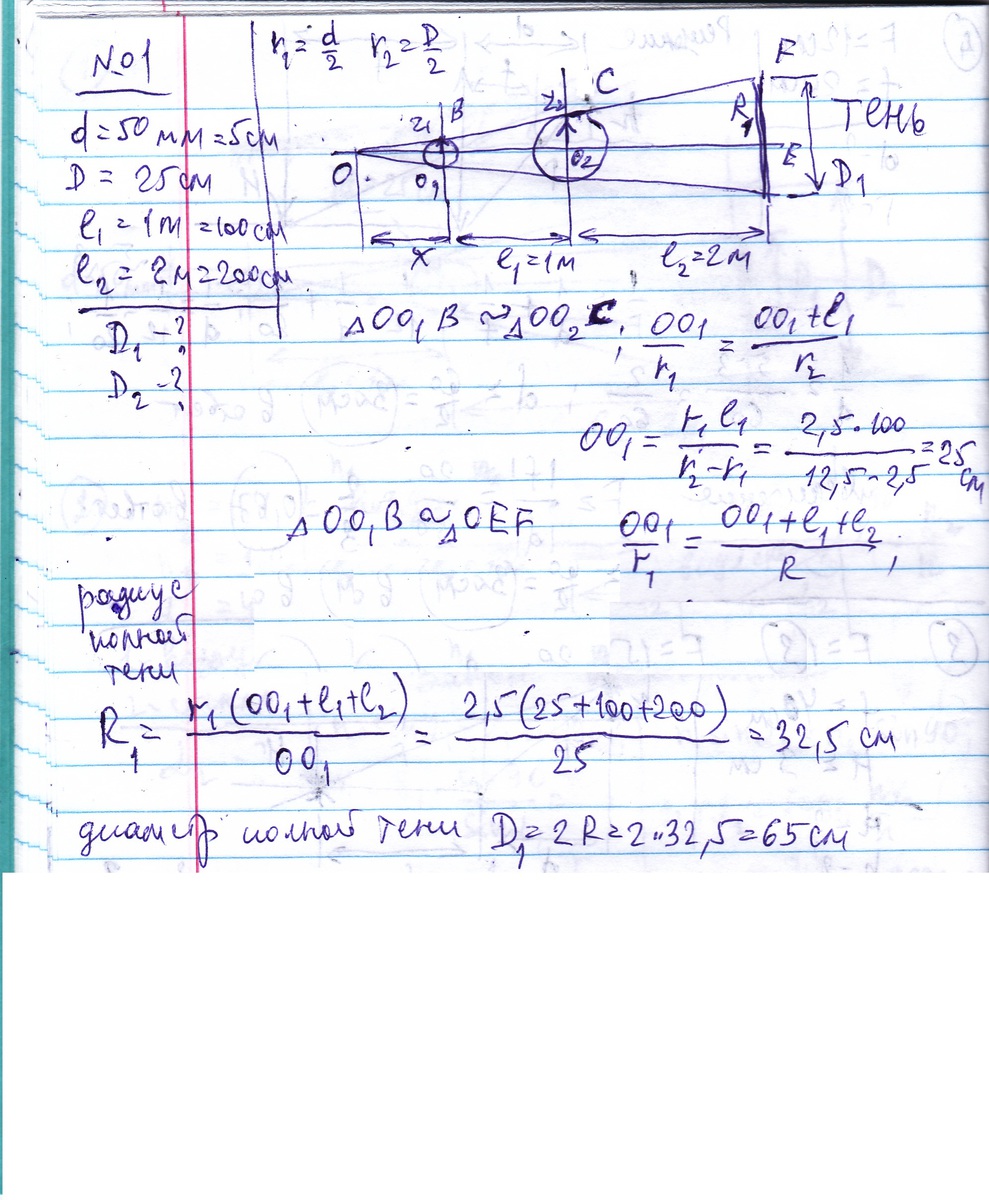 №1
d = 50 мм = 5см
D = 25см
l₁ = 1м = 100см
l₂ = 2м = 200см
D₁ - ?
D₂ - ?
r₁ = d/2 r₂ = D/2
O r₁ B O₁ r₂ C O₂ R₁ F E D₁ тень
x l₁=1м l₂=2м
△OO₁B ~ △OO₂C; OO₁/r₁ = (OO₁+l₁)/r₂
OO₁ = r₁l₁/(r₂-r₁) = 2,5·100/(12,5-2,5) = 25 см
△OO₁B ~ △OEF OO₁/r₁ = (OO₁+l₁+l₂)/R;
радиус
полной
тени
R₁ = r₁(OO₁+l₁+l₂)/OO₁ = 2,5(25+100+200)/25 = 32,5 см
диаметр полной тени D₁ = 2R = 2·32,5 = 65 см